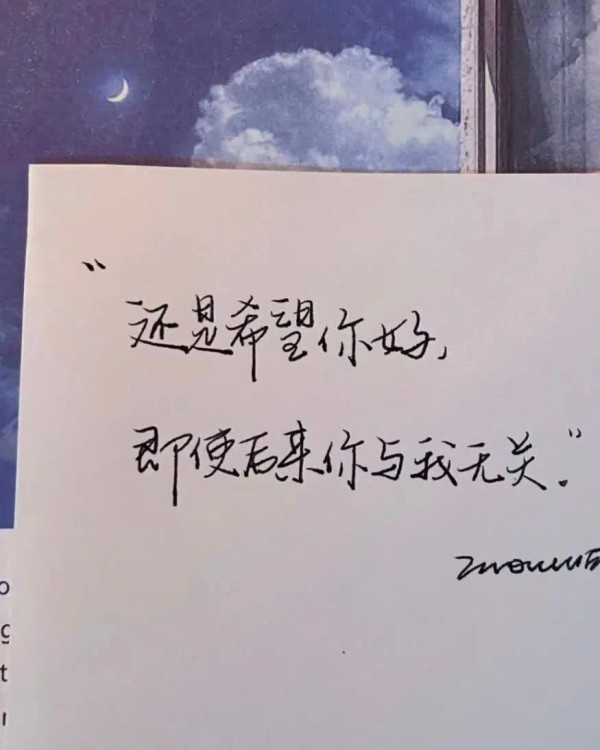 “还是希望你好,
即使后来你与我无关”.
o
g
t